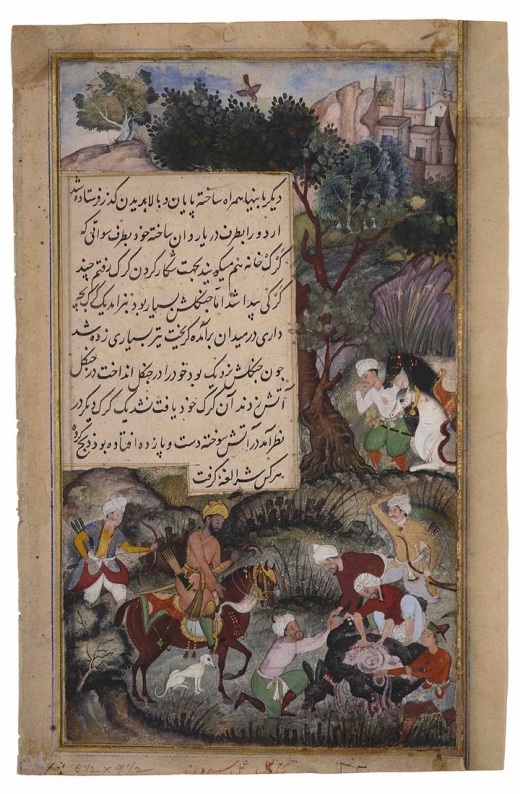 دیگر با بنها همراه ساخته پایان دبالا بدیدن کذر فرستاده شد
اردو را بطرف دریا روان ساخته خود بطرف سواتی که
کرک خانه هم میکویند بجهت شکار کردن کرک رفتیم چند
کرکی پیدا شد اما جنکلش بسیار بود بنرامد یک کرک بچه
داری در میدان برآمده کریخت تیر بسیاری زده شد
چون جنکلش نزدیک بود خود را در جنکل انداخت در جنکل
آتش زدند آن کرک خود یافت نشد یک کرک دیکر در
نظر آمد در آتش سوخته دست و پا زده افتاده بود ذبح کرده
هر کس شرالغه کرفت
6 1/2 x 9 1/2